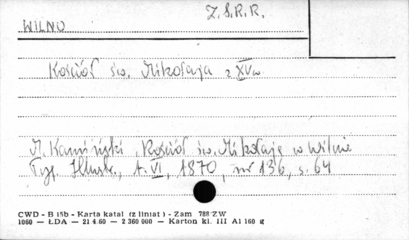 Z.S.R.R.
WILNO
Kościół św. Mikołaja z XVw
M. Kamiński, Kościół św. Mikołaja w Wilnie
Tyg. Illustr., t. VI, 1870, nr 136, s. 64
CWD - B 15b - Karta katal (z liniat) - Zam 788 ZW
1060 — ŁDA — 21.4.60 — 2 360 000 — Karton kl. III A1 160 g